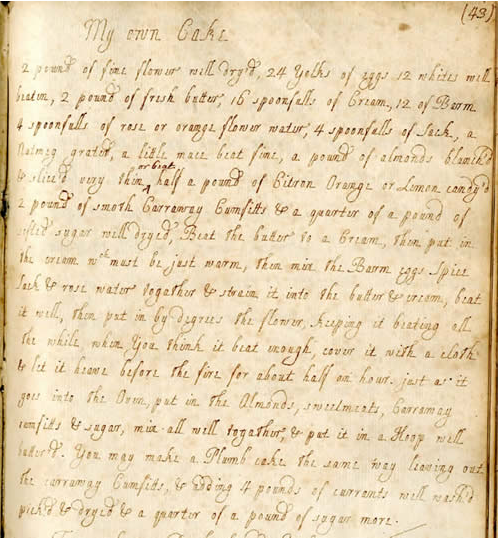 (43)
My own Cake
2 pound of fine flower well dry'd, 24 Yolks of eggs 12 whites well
beaten, 2 pound of fresh butter, 16 spoonfulls of Cream, 12 of Barm
4 spoonfulls of rose or orange flower water, 4 spoonfulls of Sack, a
Nutmeg grated, a little mace beat fine, a pound of almonds blanch'd
or beat
& slice'd very thin ^ half a pound of Citron Orange or Lemon candy'd
2 pound of smoth Carraway Cumfitts & a quarter of a pound of
sifted sugar well dryed, Beat the butter to a Cream, then put in
the cream wch must be just warm, then mix the Barm eggs Spice
Sack & rose water together & strain it into the butter & cream, beat
it well, then put in by degrees the flower, keeping it beating all
the while when You think it beat enough, cover it with a cloth
& let it heave before the fire for about half an hour. just as it
goes into the Oven, put in the Almonds, sweetmeats, Carraway
cumfitts & sugar, mix all well together, & put it in a Hoop well
butter'd. You may make a Plumb cake the same way leaving out
the carraway Cumfitts, & adding 4 pounds of currants well wash'd
pick'd & dryed & a quarter of a pound of sugar more.